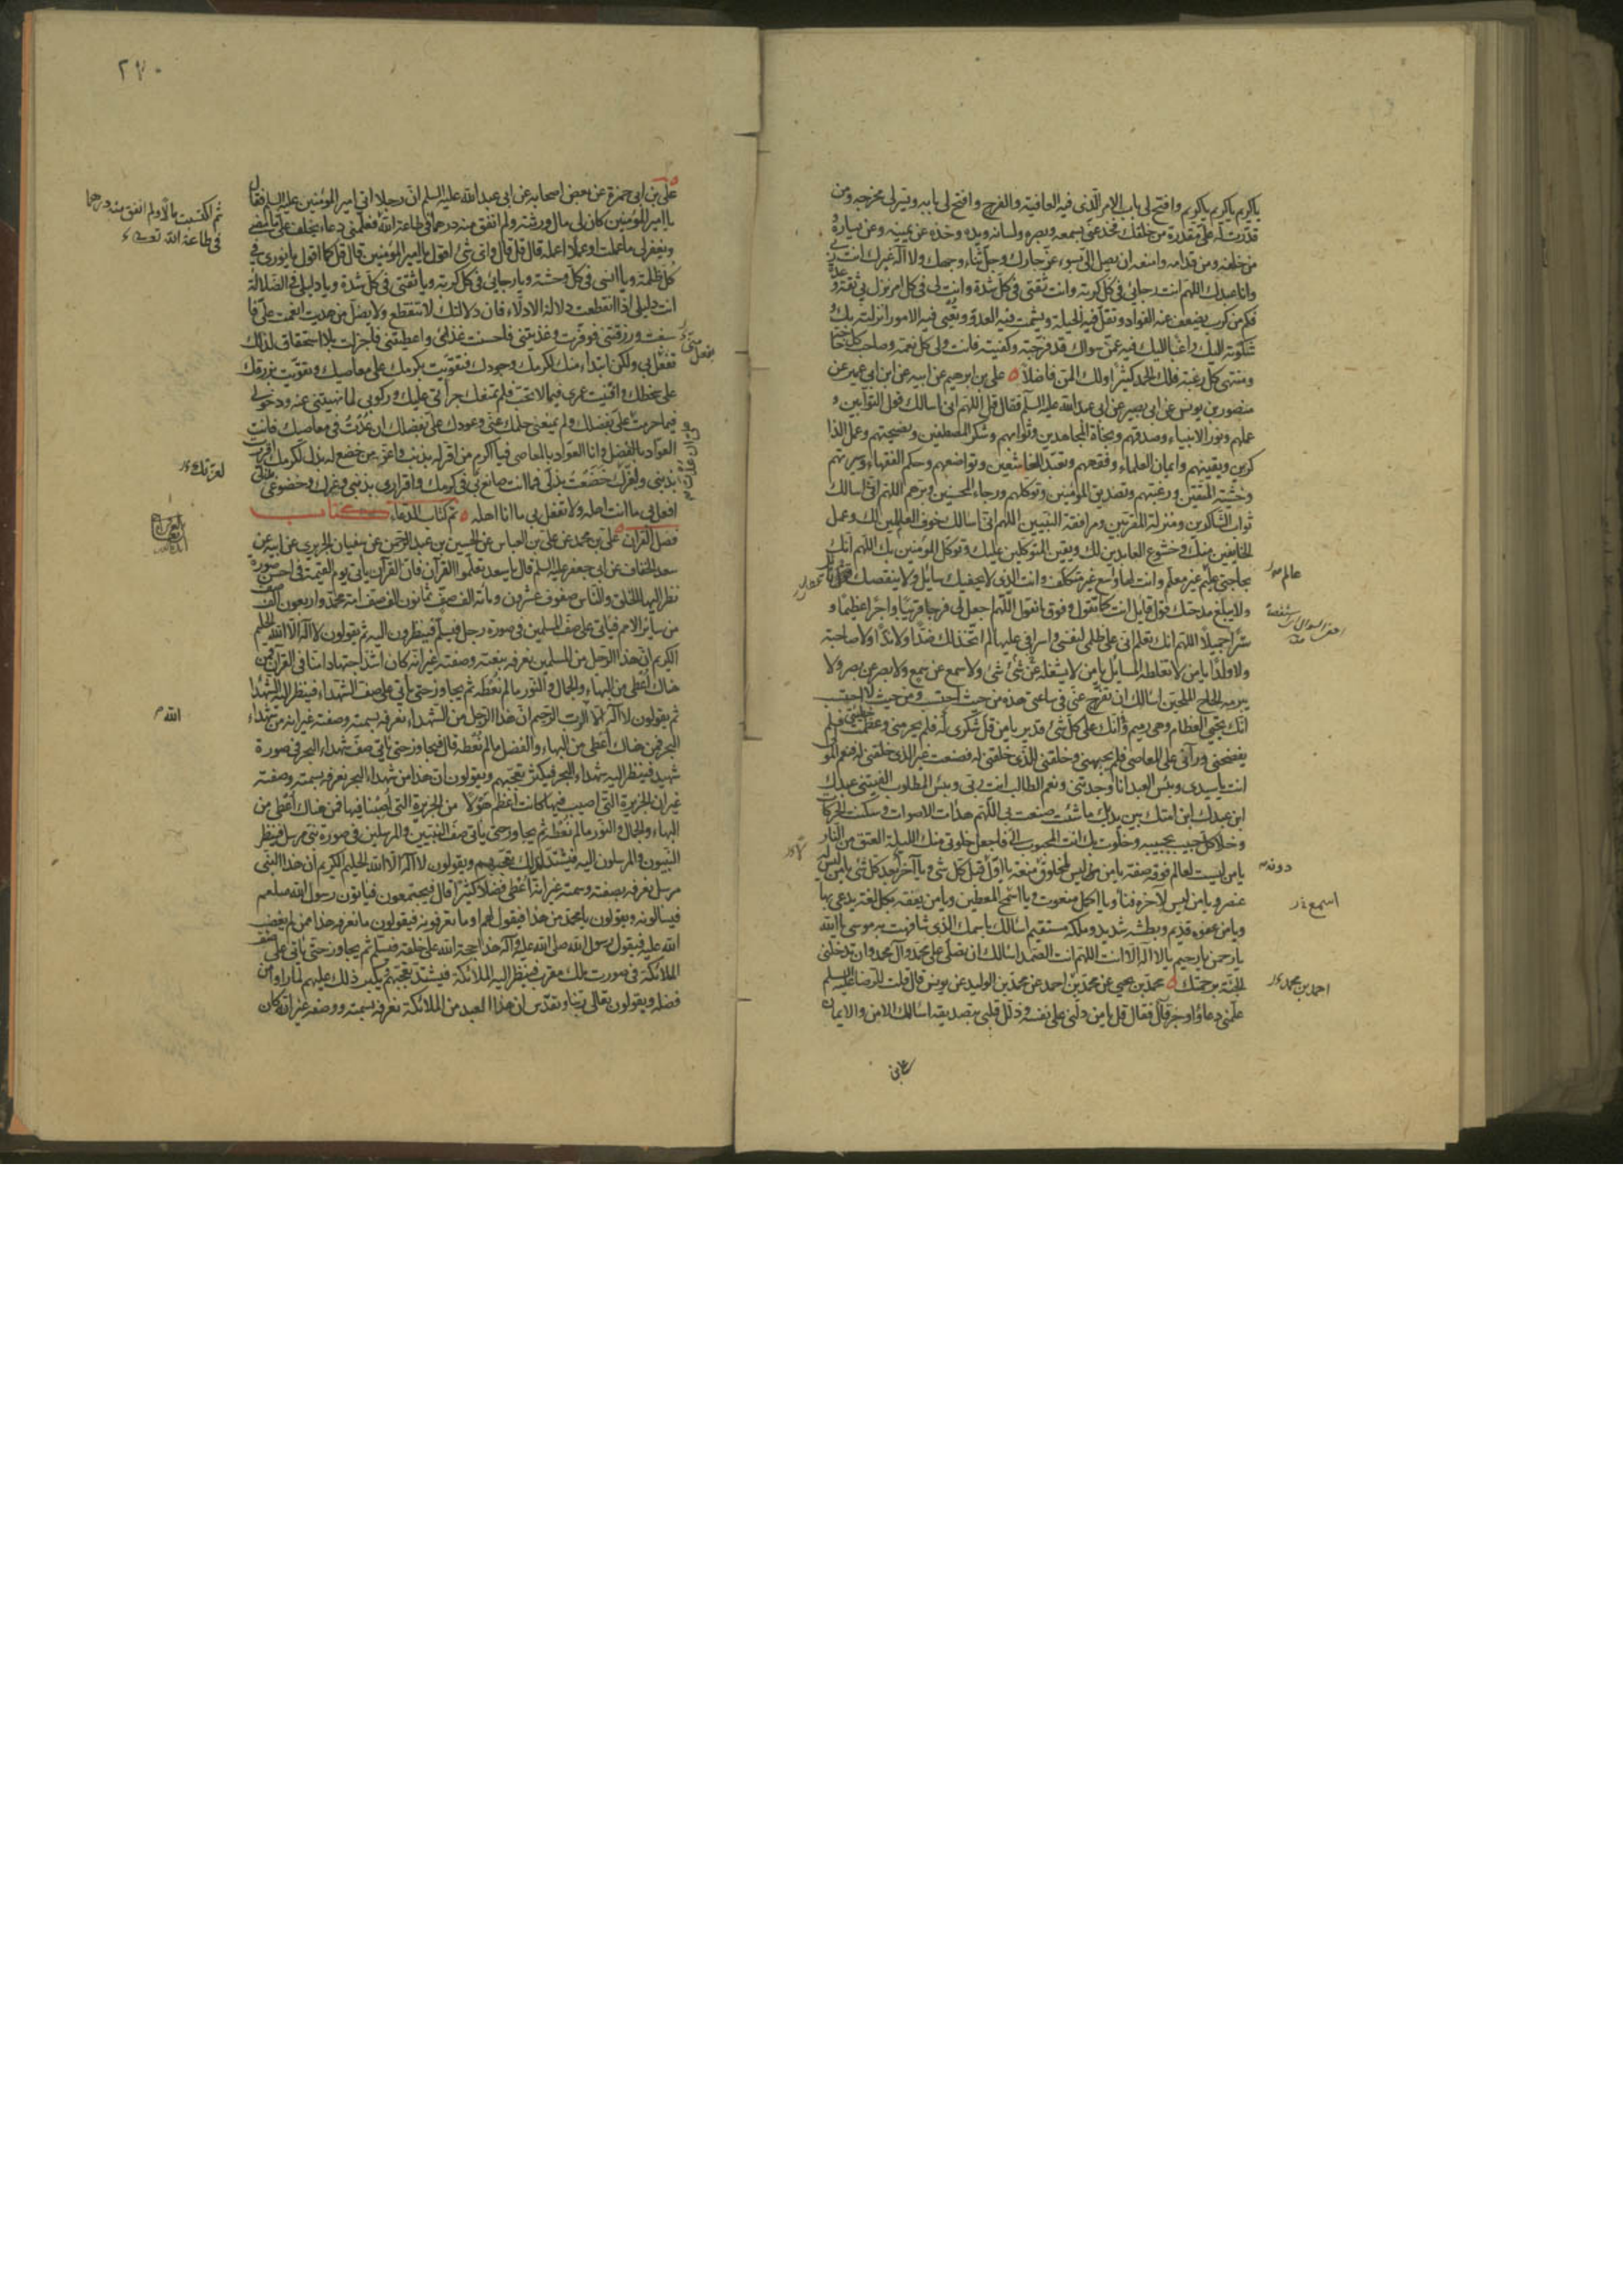 ياكريم ياكريم ياكريم وافتح لى باب الامر الذى فيه العافية والفرج وافتح لى بابه ويسر لى مخرجه ومن
قدرت له على مقدرة من خلقك فخذ عنى بسمعه وبصره ولسانه ويده وخذه عن يمينه وعن يساره و
من خلفه ومن قدامه وامنعه ان يصل الى بسوء عز جارك وجل ثناء وجهك ولا اله غيرك انت ربى
وانا عبدك اللهم انت رجائى فى كل كربة وانت ثقتى فى كل شدة وانت لى فى كل امر نزل بى ثقة و عدة
فكم من كرب يضعف عنه الفؤاد وتقل فيه الحيلة ويشمت فيه العدو وتعيى فيه الامور انزلته بك و
شكوته اليك راغبا اليك فيه عمن سواك قد فرجته وكفيته فانت ولى كل نعمة وصاحب كل حاجة
ومنتهى كل رغبة فلك الحمد كثيرا ولك المن فاضلا ه على بن ابرهيم عن ابيه عن ابن ابى عمير عن
منصور بن يونس عن ابى بصير عن ابى عبد الله عليه السلم فقال قل اللهم انى اسالك قول التوابين و
علمهم ونور الانبياء وصدقهم ونجاة المجاهدين وثوابهم وشكر المصطفين ونصيحتهم وعمل الذا
كرين ويقينهم وايمان العلماء وفقههم وتعبد الخاشعين وتواضعهم وحكم الفقهاء وسيرتهم
وخشية المتقين ورغبتهم وتصديق المؤمنين وتوكلهم ورجاء المحسنين وبرهم اللهم انى اسالك
ثواب الشاكرين ومنزلة المقربين ومرافقة النبيين اللهم انى اسالك خوف العالمين لك وعمل
الخايفين منك وخشوع العابدين لك ويقين المتوكلين عليك وتوكل المؤمنين بك اللهم انك
بحاجتى عليم غير معلم وانت لها واسع غير متكلف وانت الذى لا يحفيك سايل ولا ينقصك نايل
عالم
ولا يبلغ مدحتك قول قايل انت كما تقول وفوق ما نقول اللهم اجعل لى فرجا قريبا واجرا عظيما و
سترا جميلا اللهم انك تعلم انى على ظلمى لنفسى واسرافى عليها لم اتخذ لك ضدا ولا ندا ولا صاحبة
ولا ولدا يا من لا تغلطه المسايل يا من لا يشغله شىء عن شىء ولا سمع عن سمع ولا بصر عن بصر ولا
يبرمه الحاح الملحين اسالك ان تفرج عنى فى ساعتى هذه من حيث احتسب ومن حيث لا احتسب
انك تحيى العظام وهى رميم وانك على كل شىء قدير يا من قل شكرى له فلم يحرمنى وعظمت خطيئتى فلم
يفضحنى ورآنى على المعاصى فلم يجبهنى وخلقنى للذى خلقنى له فصنعت غير الذى خلقنى له فنعم المولى
انت ياسيدى وبئس العبد انا وجدتنى ونعم الطالب انت ربى وبئس المطلوب الفيتنى عبدك
ابن عبدك ابن امتك بين يديك ما شئت صنعت بى اللهم هدات الاصوات وسكنت الحركات
وخلا كل حبيب بحبيبه وخلوت بك انت المحبوب الى فاجعل خلوتى منك الليلة العتق من النار
يا من ليست لعالم فوقه صفة يا من ليس لمخلوق دونه منعة يا اول قبل كل شى ويا آخر بعد كل شى يا من ليس له
دونه
عنصر ويا من ليس لآخره فناء ويا اكمل منعوت ويا اسمح المعطين ويا من يفقه بكل لغة يدعى بها
اسمع
ويا من عفوه قديم وبطشه شديد وملكه مستقيم اسالك باسمك الذى شافهت به موسى ياالله
يا رحمن يا رحيم يا لا اله الا انت اللهم انت الصمد اسالك ان تصلى على محمد وآل محمد وان تدخلنى
الجنة برحمتك ه محمد بن يحيى عن محمد بن احمد عن محمد بن الوليد عن يونس قال قلت للرضا عليه السلم
احمد بن محمد
علمنى دعاء واوجز قال فقال قل يا من دلنى على نفسه وذلل قلبى بتصديقه اسالك الامن والايمان
على بن
٢٧٠
على بن ابى حمزة عن بعض اصحابه عن ابى عبد الله عليه السلم ان رجلا اتى امير المؤمنين عليه السلم فقال
ثم اكتسبت مالا ولم انفق منه درهما
فى طاعة الله
يا امير المؤمنين كان لى مال ورثته ولم انفق منه درهما فى طاعة الله فعلمنى دعاء يخلف على ما مضى
ويغفر لى ما عملت او عملا اعمله قال قل قال واى شىء اقول يا امير المؤمنين قال قل كما اقول يا نورى فى
كل ظلمة ويا انسى فى كل وحشة ويا رجائى فى كل كربة ويا ثقتى فى كل شدة ويا دليلى فى الضلالة
انت دليلى اذا انقطعت دلالة الادلاء فان دلالتك لا تنقطع ولا يضل من هديت انعمت على فا
سبغت ورزقتنى فوفرت وغذيتنى فاحسنت غذائى واعطيتنى فاجزلت بلا استحقاق لذلك
بفعل منى
تفعل بى ولكن ابتداء منك لكرمك وجودك فتقويت بكرمك على معاصيك وتقويت برزقك
على سخطك وافنيت عمرى فيما لا تحب فلم يمنعك جرأتى عليك وركوبى لما نهيتنى عنه ودخولى
فيما حرمت على بفضلك ولم يمنعنى حلمك عنى وعودك على بفضلك ان عدت فى معاصيك فانت
العواد بالفضل وانا العواد بالمعاصى فيا اكرم من اقر له بذنب واعز من خضع له بذل لكرمك اقررت
لعزتك
بذنبى ولعزك خضعت بذلى فما انت صانع بى فى كرمك واقرارى بذنبى وعزك وخضوعى بذلى
افعل بى ما انت اهله ولا تفعل بى ما انا اهله ه تم كتاب الدعاء كتاب
فضل القرآن ه على بن محمد عن على بن العباس عن الحسين بن عبد الرحمن عن سفيان الحريرى عن ابيه عن
سعد الخفاف عن ابى جعفر عليه السلم قال يا سعد تعلموا القرآن فان القرآن يأتى يوم القيمة فى احسن صورة
نظر اليها الخلق والناس صفوف عشرون ومأة الف صف ثمانون الف صف امة محمد واربعون الف صف
من سائر الامم فياتى على صف المسلمين فى صورة رجل فيسلم فينظرون اليه ثم يقولون لا اله الا الله الحليم
الكريم ان هذا الرجل من المسلمين نعرفه بنعته وصفته غير انه كان اشد اجتهادا منا فى القرآن فمن
هناك اعطى من البهاء والجمال والنور ما لم نعطه ثم يجاوز حتى يأتى على صف الشهداء فينظر اليه الشهداء
ثم يقولون لا اله الا الرب الرحيم ان هذا الرجل من الشهداء نعرفه بسمته وصفته غير انه من شهداء
الله
البحر فمن هناك اعطى من البهاء والفضل ما لم نعطه قال فيجاوز حتى يأتى صف شهداء البحر فى صورة
شهيد فينظر اليه شهداء البحر فيكثر تعجبهم ويقولون ان هذا من شهداء البحر نعرفه بسمته وصفته
غير ان الجزيرة التى اصيب فيها كانت اعظم هولا من الجزيرة التى اصبنا فيها فمن هناك اعطى من
البهاء والجمال والنور ما لم نعطه ثم يجاوز حتى يأتى صف النبيين والمرسلين فى صورة نبى مرسل فينظر
النبيون والمرسلون اليه فيشتد لذلك تعجبهم ويقولون لا اله الا الله الحليم الكريم ان هذا النبى
مرسل نعرفه بصفته وسمته غير انه اعطى فضلا كثيرا قال فيجتمعون فيأتون رسول الله صلعم
فيسالونه ويقولون يا محمد من هذا فيقول لهم او ما تعرفونه فيقولون ما نعرفه هذا ممن لم يغضب
الله عليه فيقول رسول الله صلى الله عليه وآله هذا حجة الله على خلقه فيسلم ثم يجاوز حتى يأتى على صف
الملائكة فى صورت ملك مقرب فينظر اليه الملائكة فيشتد تعجبهم ويكبر ذلك عليهم لما راوا من
فضله ويقولون تعالى ربنا وتقدس ان هذا العبد من الملائكة نعرفه بسمته ووصفه غير انه كان